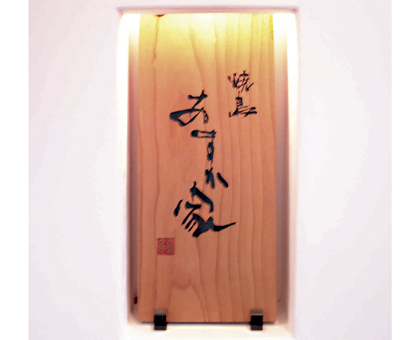 焼鳥
あすか家